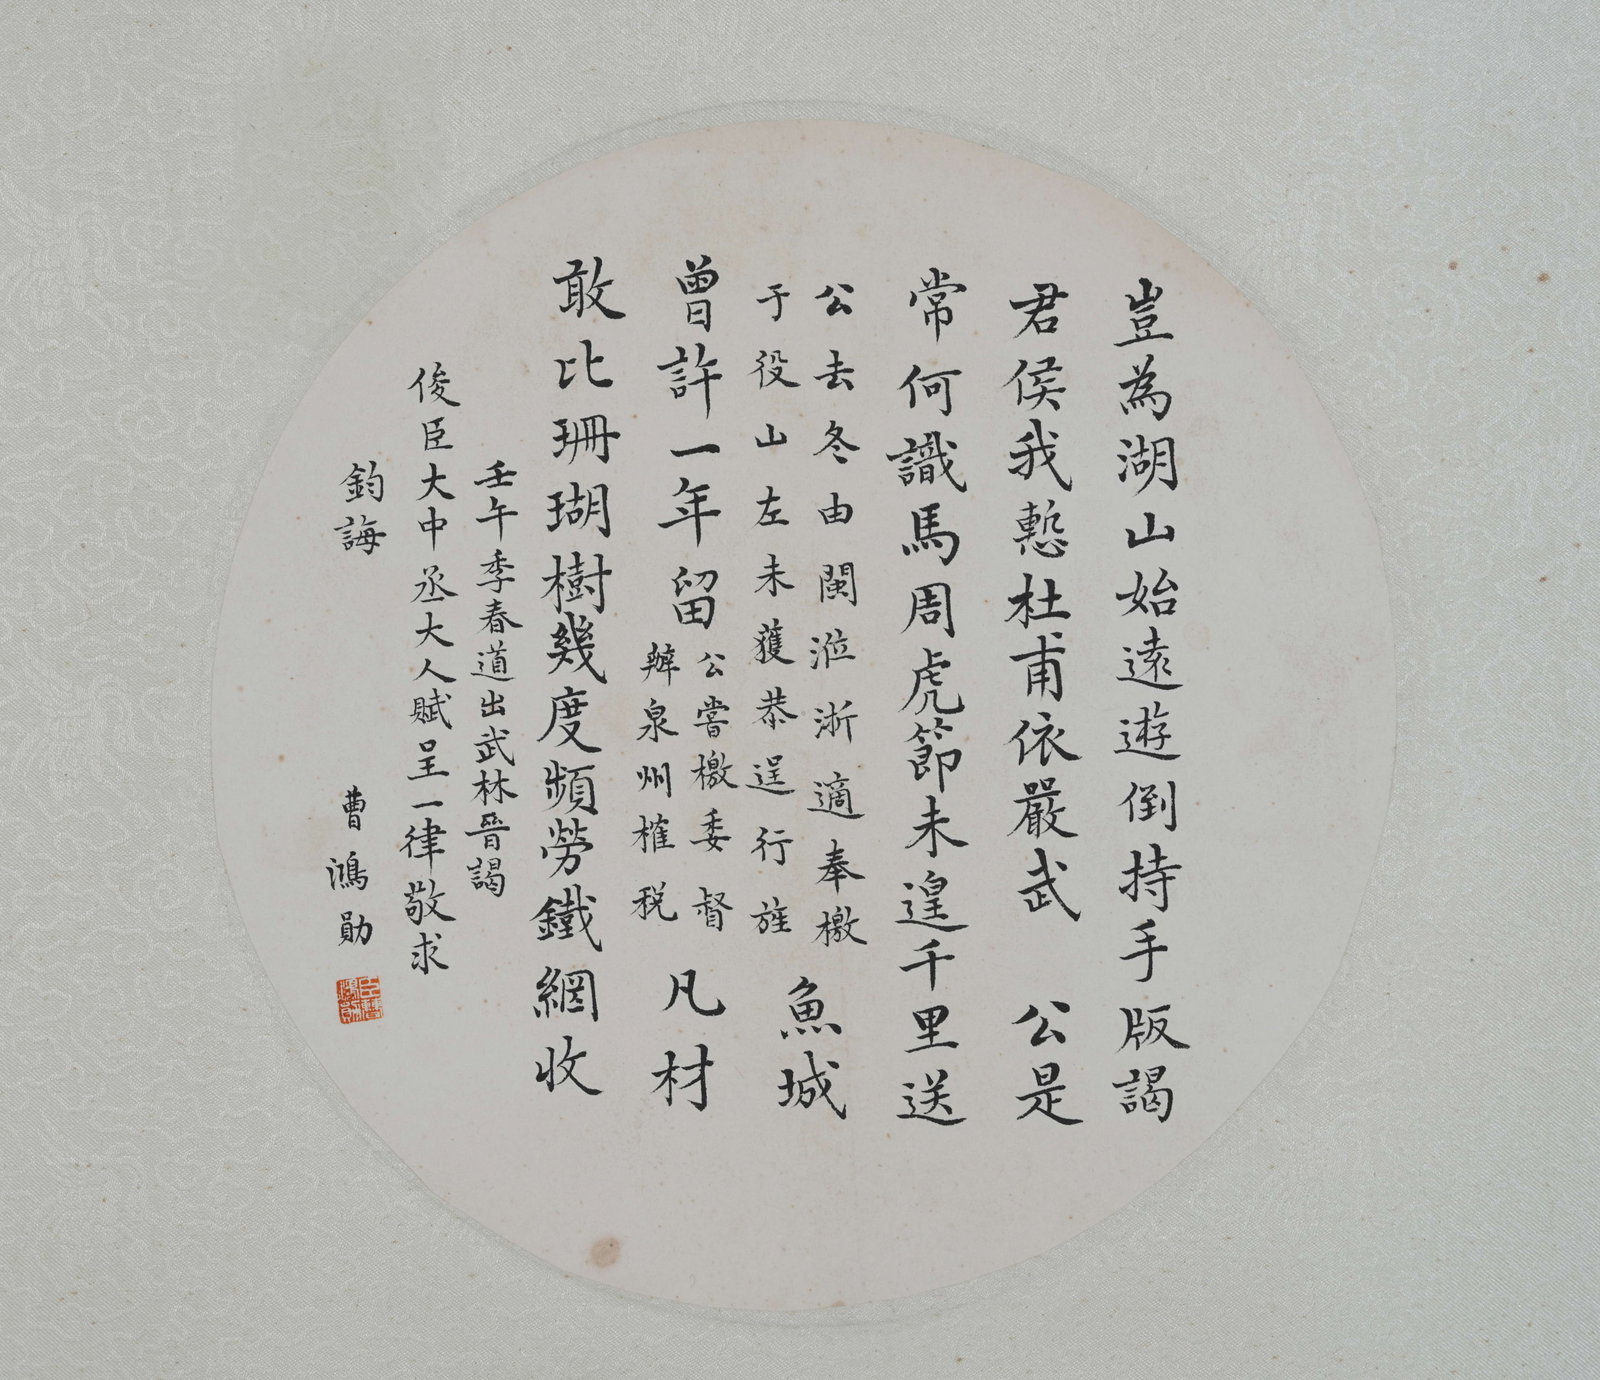 豈為湖山始遠遊倒持手版謁
君侯我慙杜甫依嚴武　公是
常何識馬周虎節未遑千里送
公去冬由閩涖浙適奉檄
于役山左未獲恭逞行旌
魚城
曾許一年留
公嘗檄委督
辦泉州榷税
凡材
敢比珊瑚樹幾度頻勞鐵網收
壬午季春道出武林晉謁
俊臣大中丞大人賦呈一律敬求
鈞誨
曹鴻勛
臣曹鴻勛